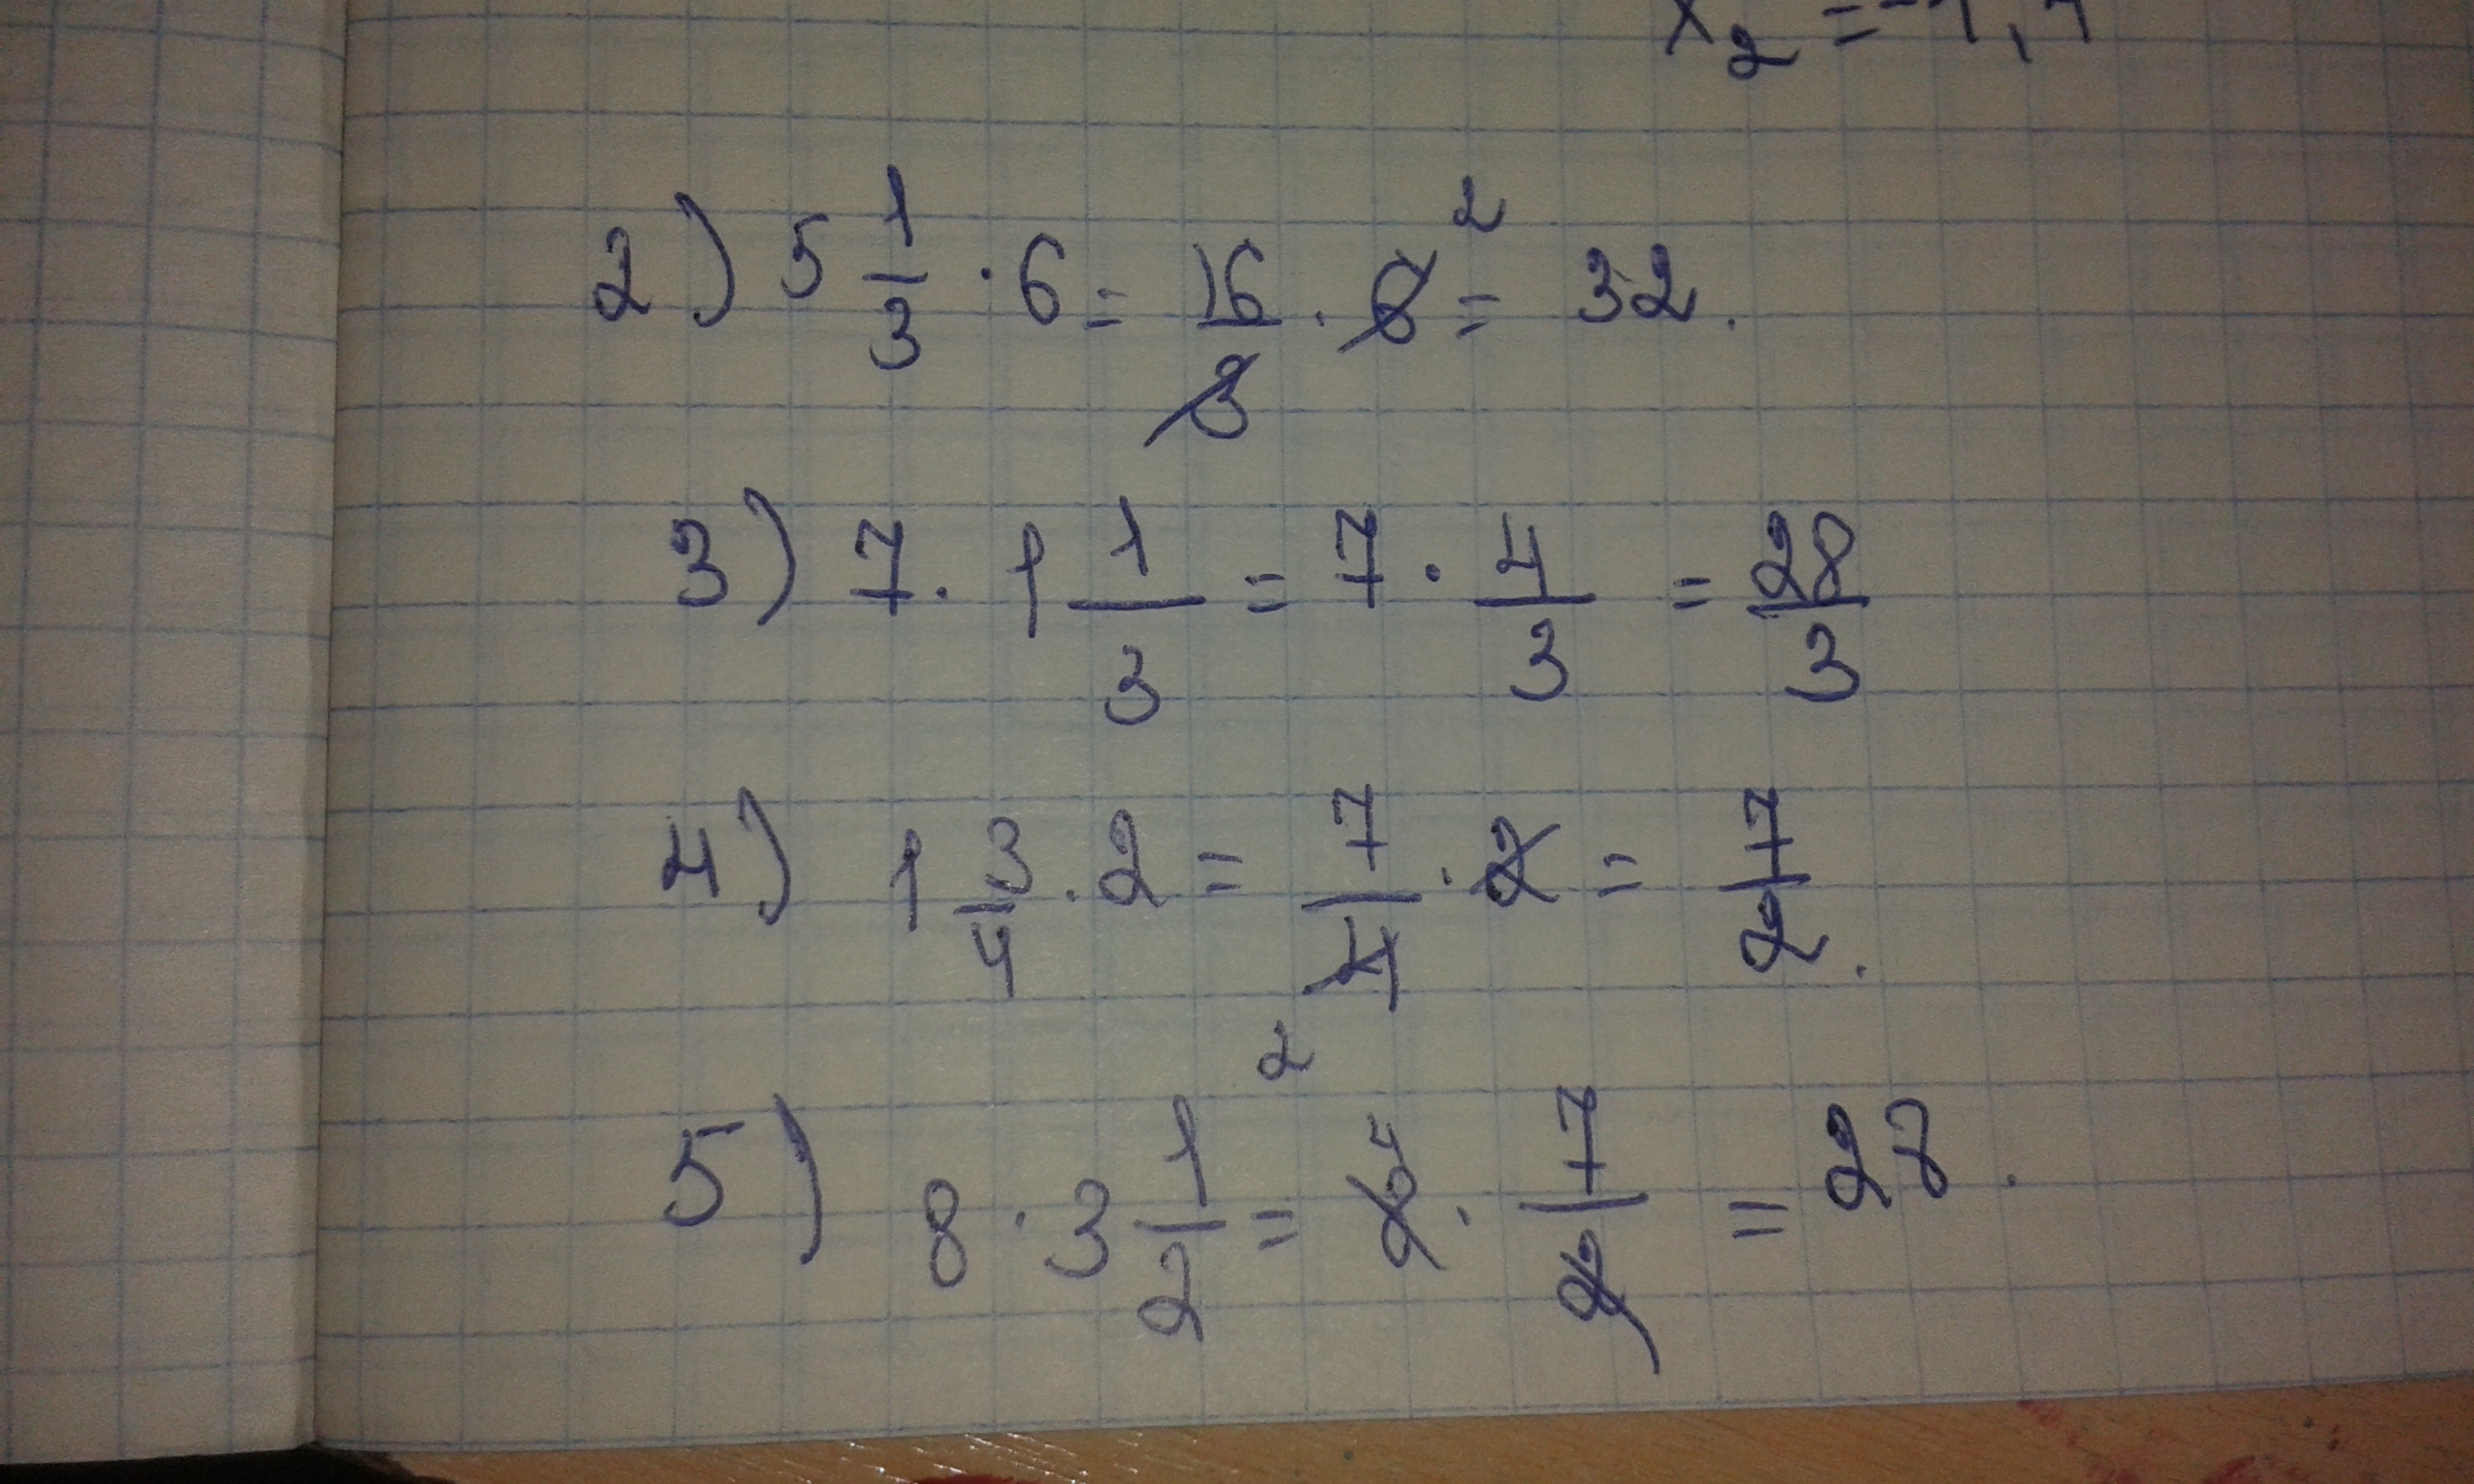 x₂ =
2) 5 1/3 · 6 = 16/3 · 6 ² = 32.
3) 7 · 1 1/3 = 7 · 4/3 = 28/3
4) 1 3/4 · 2 = 7/4 · 2 = 7/2.
2
5) 8 · 3 1/2 = 8 ⁴ · 7/2 = 28.